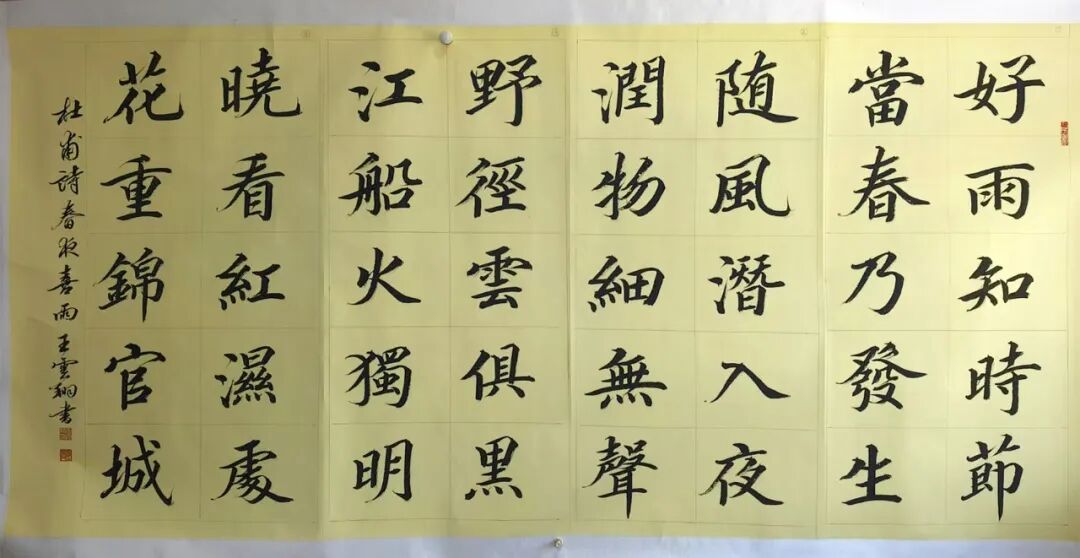 好雨知時節
當春乃發生
随風潛入夜
潤物細無聲
野徑雲俱黑
江船火獨明
曉看紅濕處
花重錦官城
杜甫詩春夜喜雨王雲翔书